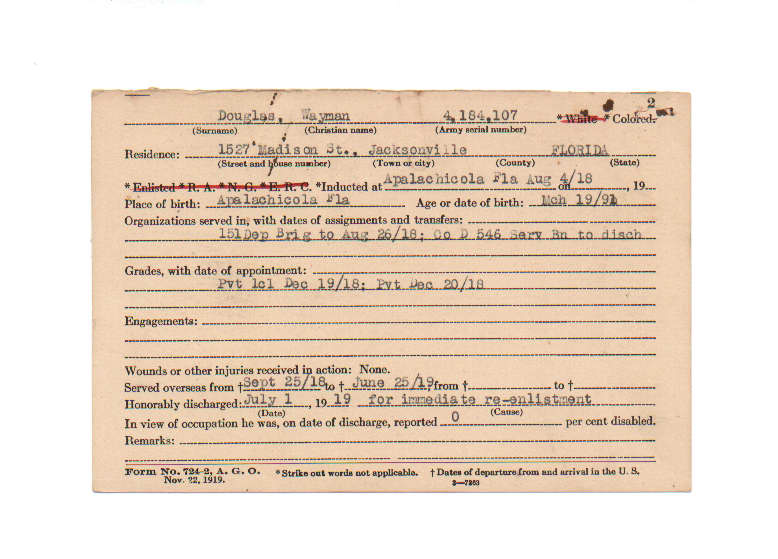 2
Douglas, Wayman 4,184,107 * White * Colored.
(Surname) (Christian name) (Army serial number)
Residence: 1527 Madison St., Jacksonville FLORIDA
(Street and house number) (Town or city) (County) (State)
* Enlisted * R. A. * N. G. * E. R. C. *Inducted at Apalachicola Fla Aug 4/18 on , 19
Place of birth: Apalachicola Fla Age or date of birth: Mch 19/91
Organizations served in, with dates of assignments and transfers:
151 Dep Brig to Aug 26/18; Co D 546 Serv Bn to disch
Grades, with date of appointment:
Pvt 1cl Dec 19/18; Pvt Dec 20/18
Engagements:
Wounds or other injuries received in action: None.
Served overseas from † Sept 25/18 to † June 25/19 from † to †
Honorably discharged: July 1 , 19 19 for immediate re-enlistment
(Date) (Cause)
In view of occupation he was, on date of discharge, reported 0 per cent disabled.
Remarks:
Form No. 724-2, A. G. O. *Strike out words not applicable. † Dates of departure from and arrival in the U. S.
Nov. 22, 1919. 3—7263